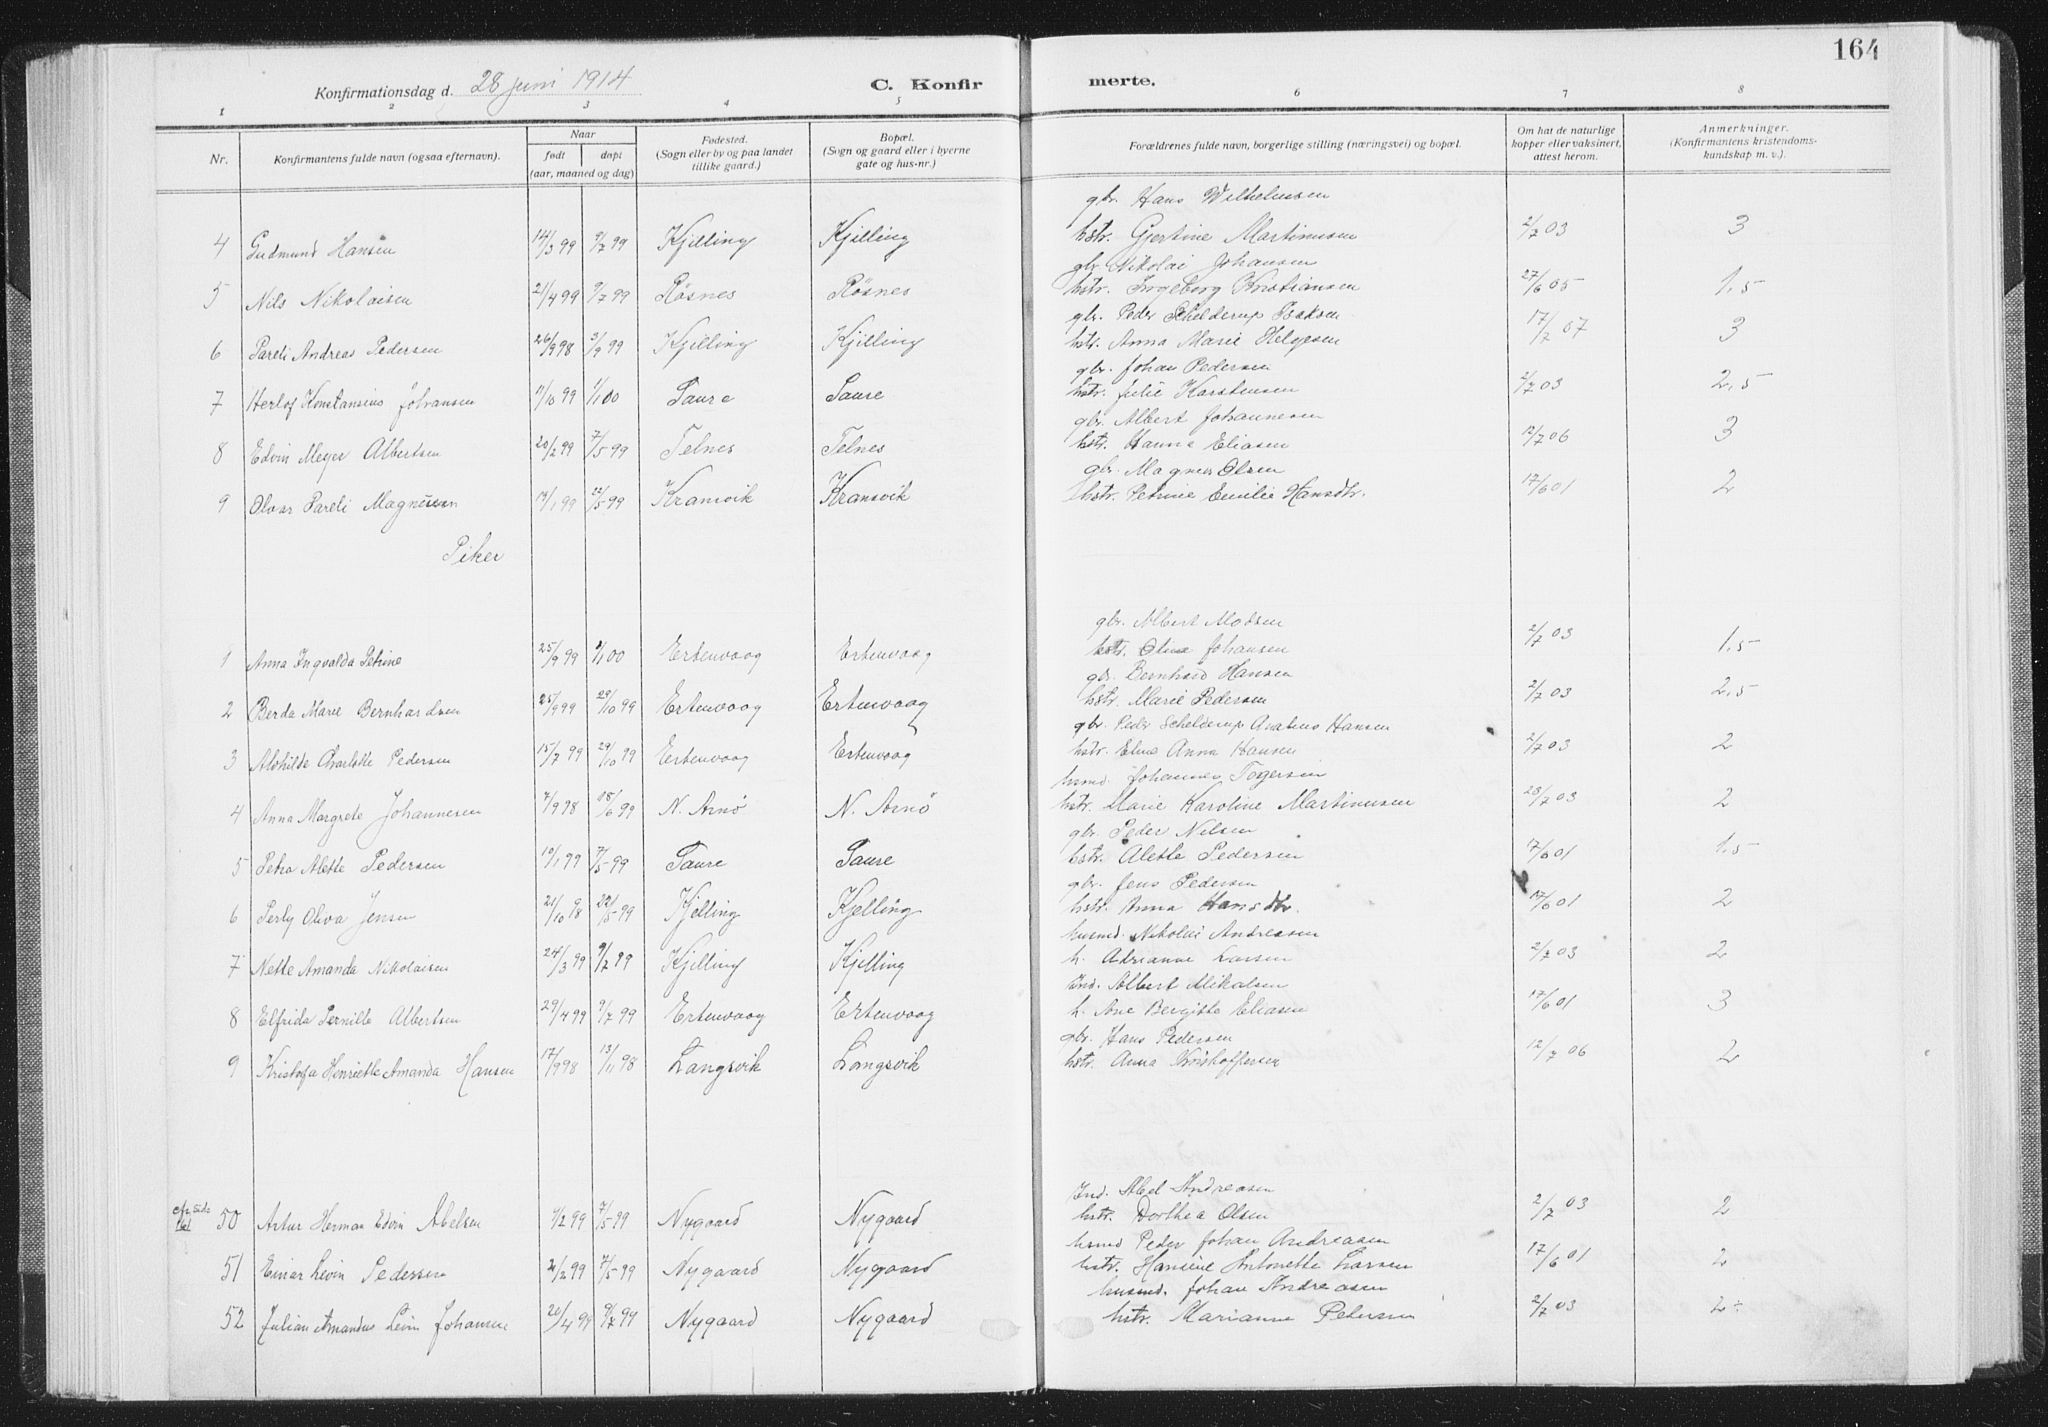 164
Konfirmationsdag d. 28 juni 1914 C. Konfirmerte.
1 2 3 4 5 6 7 8
Nr. Konfirmantens fulde navn (ogsaa efternavn). Naar født døpt (aar, maaned og dag) Fødested. (Sogn eller by og paa landet tillike gaard.) Bopæl. (Sogn og gaard eller i byerne gate og hus-nr.) Forældrenes fulde navn, borgerlige stilling (næringsvei) og bopæl. Om hat de naturlige kopper eller vaksinert, attest herom. Anmerkninger. (Konfirmantens kristendomskundskap m. v.).
gbr. Hans Wilhelmsen
4 Gudmund Hansen 14/3 99 9/7 99 Kjelling Kjelling hstr. Gjertine Martinusen 2/7 03 3
gbr. Nikolai Johansen
5 Nils Nikolaisen 21/4 99 9/7 99 Røsnes Røsnes hstr. Ingeborg Kristiansen 27/6 05 1,5
gbr. Peder Schelderup Isaksen
6 Pareli Andreas Pedersen 26/9 98 3/9 99 Kjelling Kjelling hstr. Anna Marie Helgesen 17/7 07 3
gbr. Johan Pedersen
7 Herlof Konstansius Johansen 11/10 99 1/1 00 Saure Saure hstr. Julie Karstensen 2/7 03 2,5
gbr. Albert Johannesen
8 Edvin Meyer Albertsen 20/2 99 7/5 99 Telnes Telnes hstr. Hanna Eliasen 12/7 06 3
gbr. Magnus Olsen
9 Olvar Pareli Magnussen 13/1 99 22/5 99 Kransvik Kransvik hstr. Petrine Emilie Hansdtr. 17/6 01 2
Piker
gbr. Albert Madsen
1 Anna Ingvalda Petrine 25/9 99 1/1 00 Ertenvaag Ertenvaag hstr. Olina Johansen 2/7 03 1,5
gbr. Bernhard Hansen
2 Berda Marie Bernhardsen 25/9 99 29/10 99 Ertenvaag Ertenvaag hstr. Marie Pedersen 2/7 03 2,5
gbr. Peder Schelderup Hansen
3 Alshilde Charlotte Pedersen 15/7 99 29/10 99 Ertenvaag Ertenvaag hstr. Eline Anna Hansen 2/7 03 2
husmd. Johannes Togersen
4 Anna Margrete Johannesen 7/9 98 18/6 99 N. Arnø N. Arnø hstr. Marie Karoline Martinusen 28/7 03 2
gbr. Peder Nilsen
5 Petra Alette Pedersen 19/1 99 7/5 99 Saure Saure hstr. Alette Pedersen 17/6 01 1,5
gbr. Jens Pedersen
6 Perly Oliva Jensen 21/10 98 22/5 99 Kjelling Kjelling hstr. Anna Hansdtr. 17/6 01 2
husmd. Nikolai Andreasen
7 Nette Amanda Nikolaisen 24/3 99 9/7 99 Kjelling Kjelling h. Adrianne Larsen 2/7 03 2
Ind. Albert Mikalsen
8 Elfrida Pernille Albertsen 29/4 99 9/7 99 Ertenvaag Ertenvaag h. Ane Bergitte Eliasen 17/6 01 3
gbr. Hans Pedersen
9 Kristofa Henriette Amanda Hansen 17/9 98 13/11 98 Langsvik Langsvik hstr. Anna Kristoffersen 12/7 06 2
Ind. Abel Andreasen
50 Artur Herman Edvin Abelsen 1/2 99 7/5 99 Nygaard Nygaard hstr. Dorthea Olsen 2/7 03 2
husmd Peder Johan Andreasen
51 Einar Levin Pedersen 21/2 99 7/5 99 Nygaard Nygaard hstr. Hansine Antonette Larsen 17/6 01 2
husmd. Johan Andreasen
52 Julian Amandus Levin Johansen 20/4 99 9/7 99 Nygaard Nygaard hstr. Marianne Pedersen 2/7 03 2÷